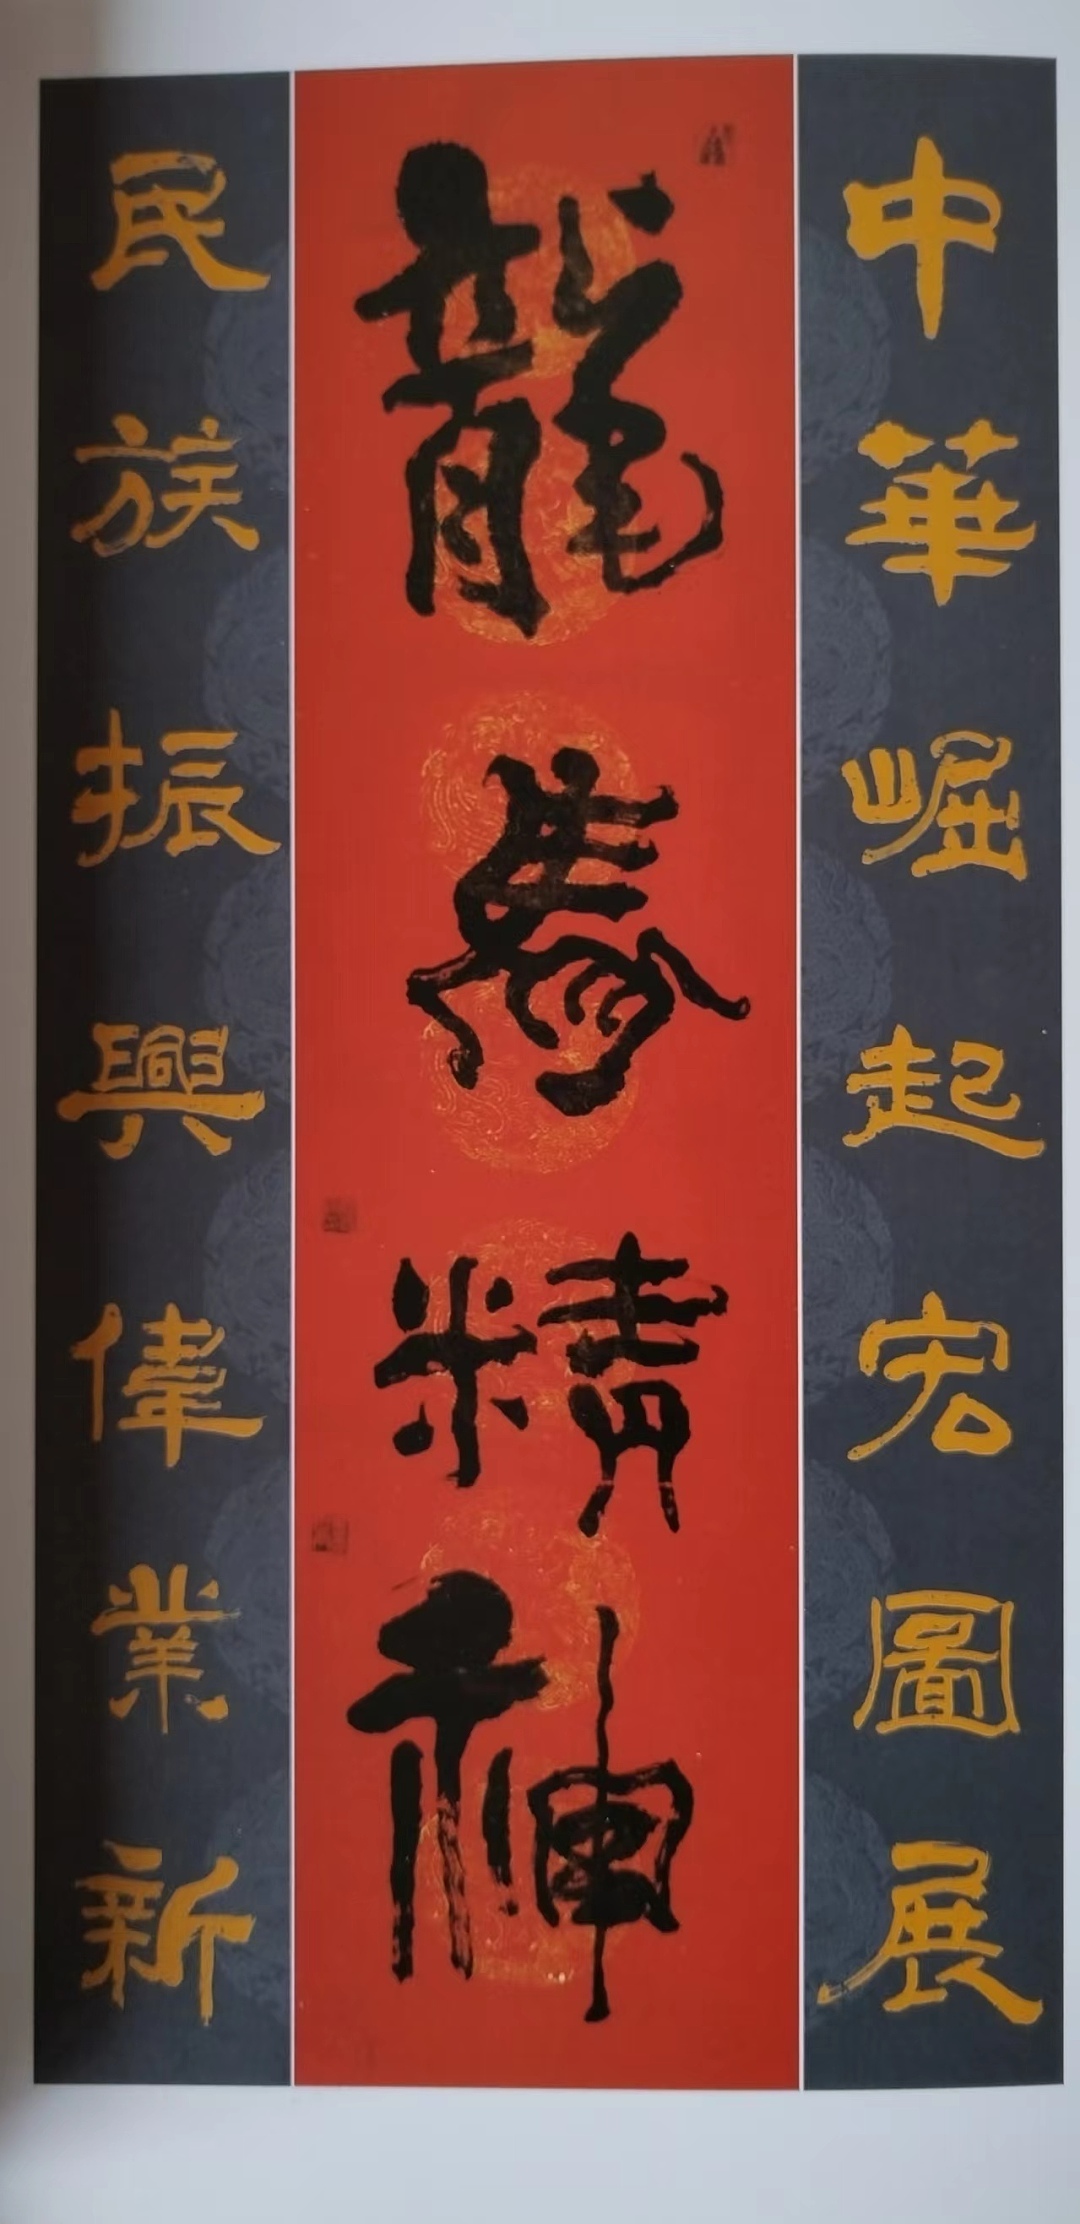 中華崛起宏圖展
龍馬精神
民族振興偉業新